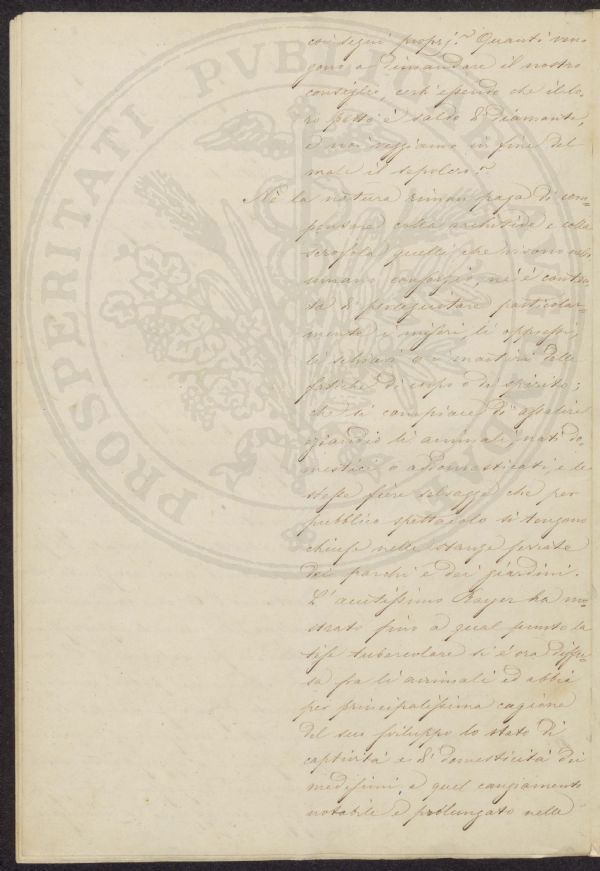 coi segni proprj? Quanti ven=
gono a dimandare il nostro
consiglio, certi essendo che il lo=
ro petto è saldo di diamante,
e noi veggiamo in fine del
male il sepolcro?
Nè la natura riman paga di com=
pensare colla rachitide e colla
scrofola quelli che vivono nell'
umano consorzio, nè è conten=
ta di perseguitare particolar=
mente i miseri, li oppressi,
li schiavi o i martiri delle
fatiche di corpo o di spirito;
che si compiace di assalire
eziandio li animali nati do=
mestici o addomesticati, e le
stesse fiere selvagge che per
pubblico spettacolo si tengono
chiuse nelle stanze ferrate
dei parchi e dei giardini.
L'acutissimo Rayer ha mo=
strato fino a qual punto la
tise tubercolare si è ora diffu=
sa fra li animali ed abbia
per principalissima cagione
del suo sviluppo lo stato di
captività e di domesticità dei
medesimi, e quel cangiamento
notabile e prolungato nelle
PROSPERITATI PUBLICAE